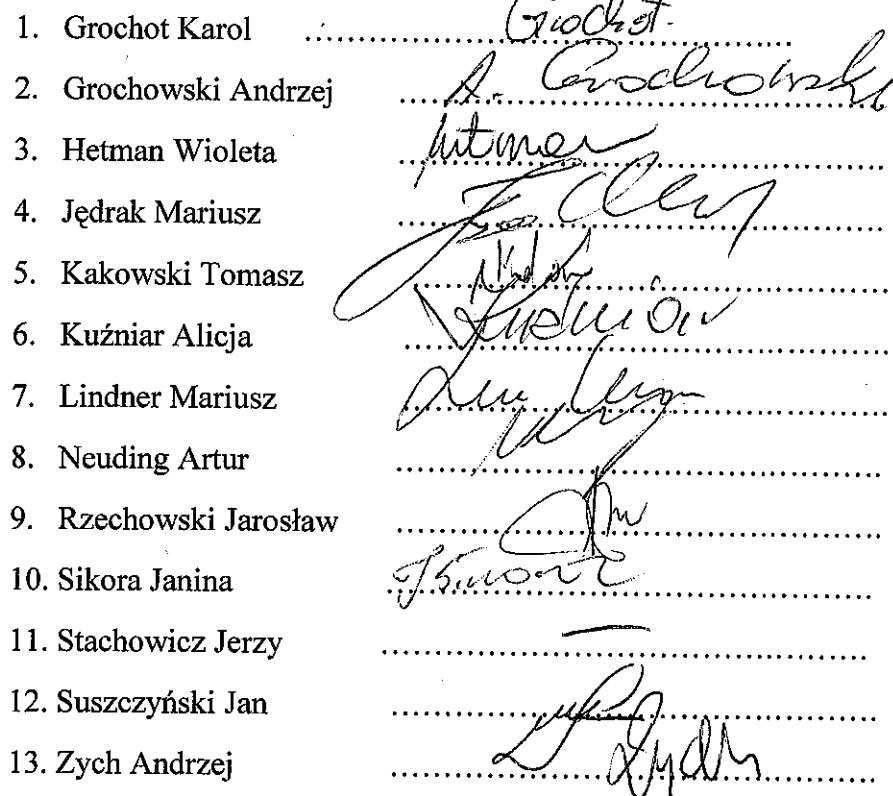 1. Grochot Karol ..... Grochot.
2. Grochowski Andrzej ..... A. Grochowski
3. Hetman Wioleta ..... Hetman
4. Jędrak Mariusz .....
5. Kakowski Tomasz .....
6. Kuźniar Alicja ..... Kuźniar
7. Lindner Mariusz .....
8. Neuding Artur .....
9. Rzechowski Jarosław .....
10. Sikora Janina .....
11. Stachowicz Jerzy ..... —
12. Suszczyński Jan .....
13. Zych Andrzej ..... Zych